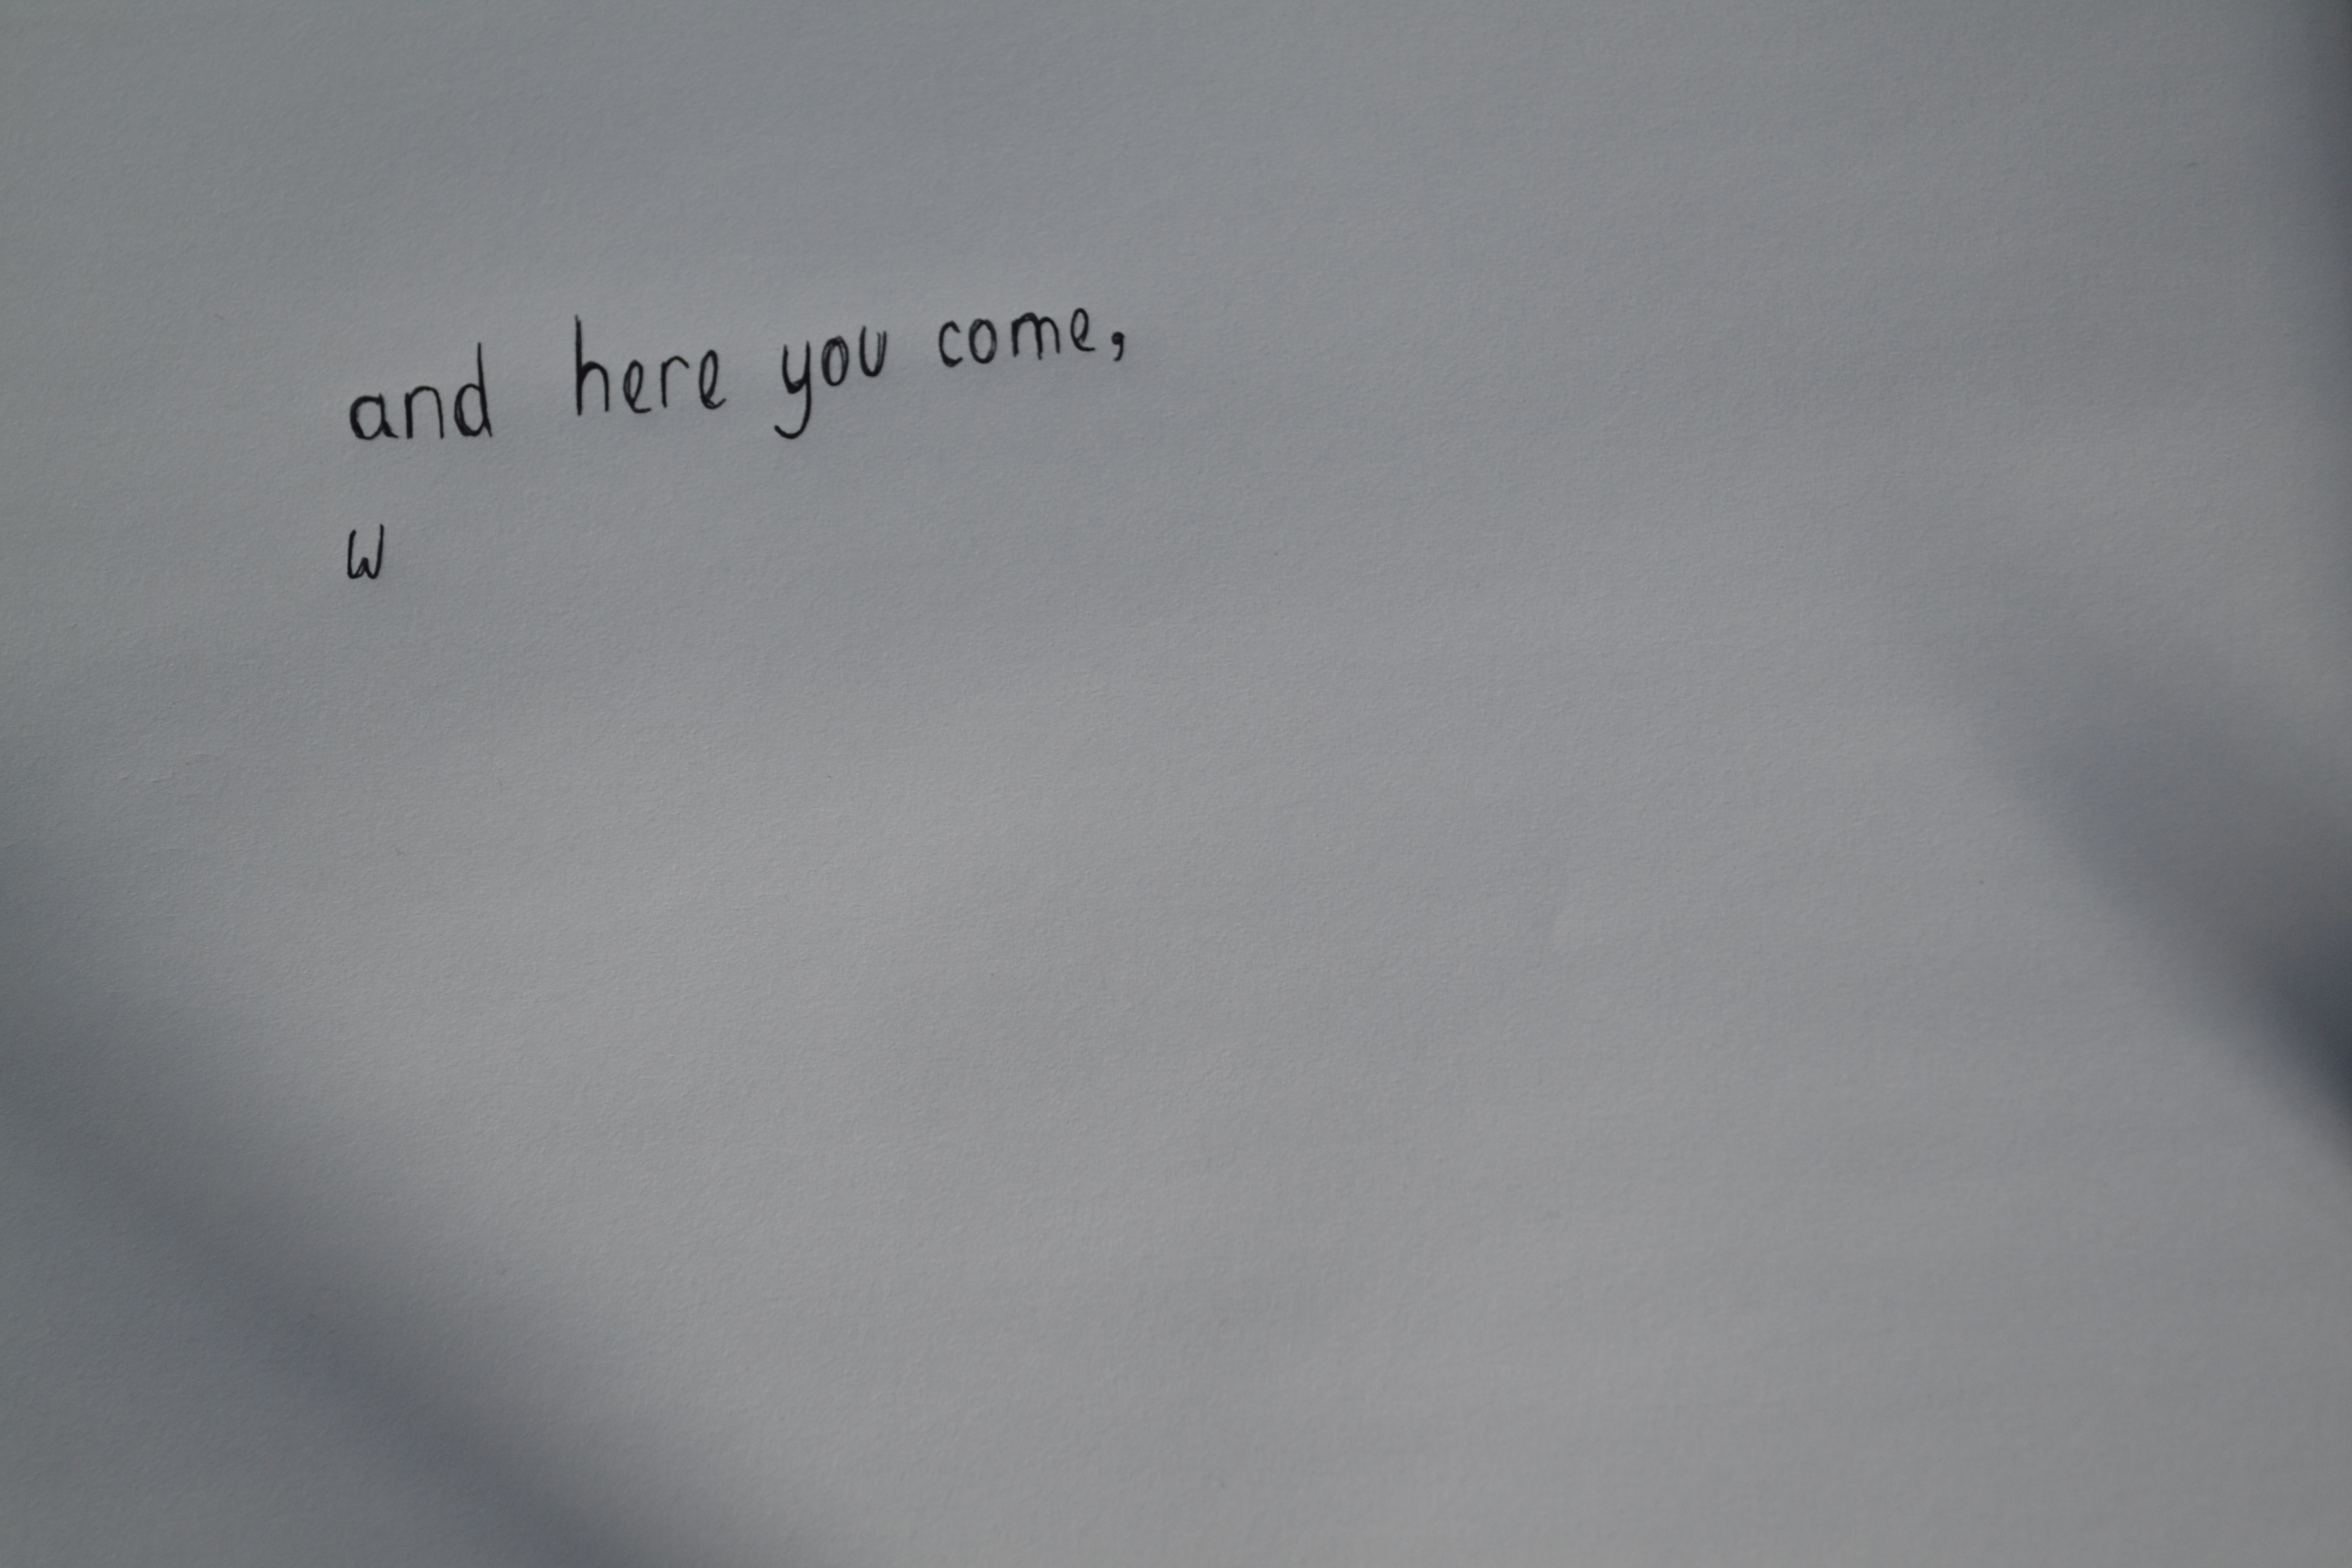 and here you come,
w